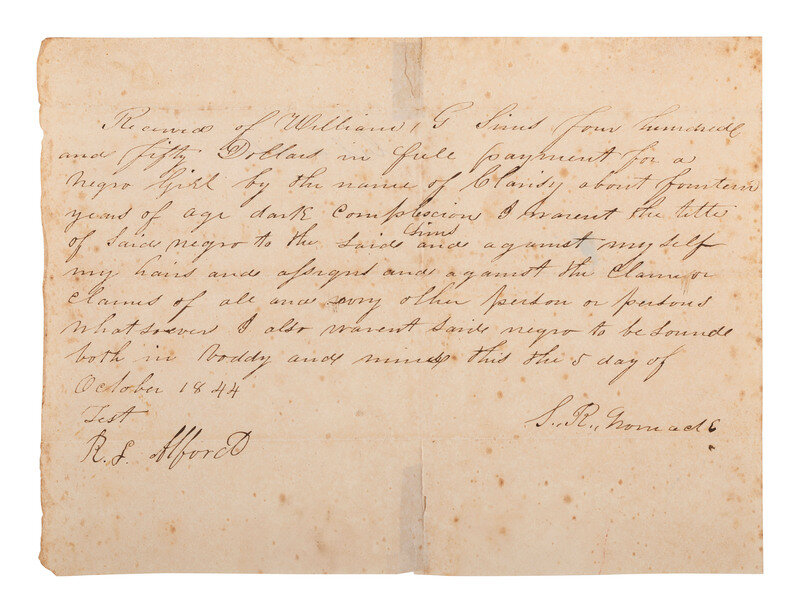 Received of William, G Sims four hundred
and fifty Dollars in full payment for a
negro Girl by the name of Clarisy about fourteen
years of age dark complescion I warent the title
of said negro to the said Sims and against myself
my hairs and assigns and against the claim or
claimes of all and evry other person or persons
whatsoever I also warent said negro to be sound
both in boddy and mind this the 5 day of
October 1844
Test
S. R.
R. L. Alford